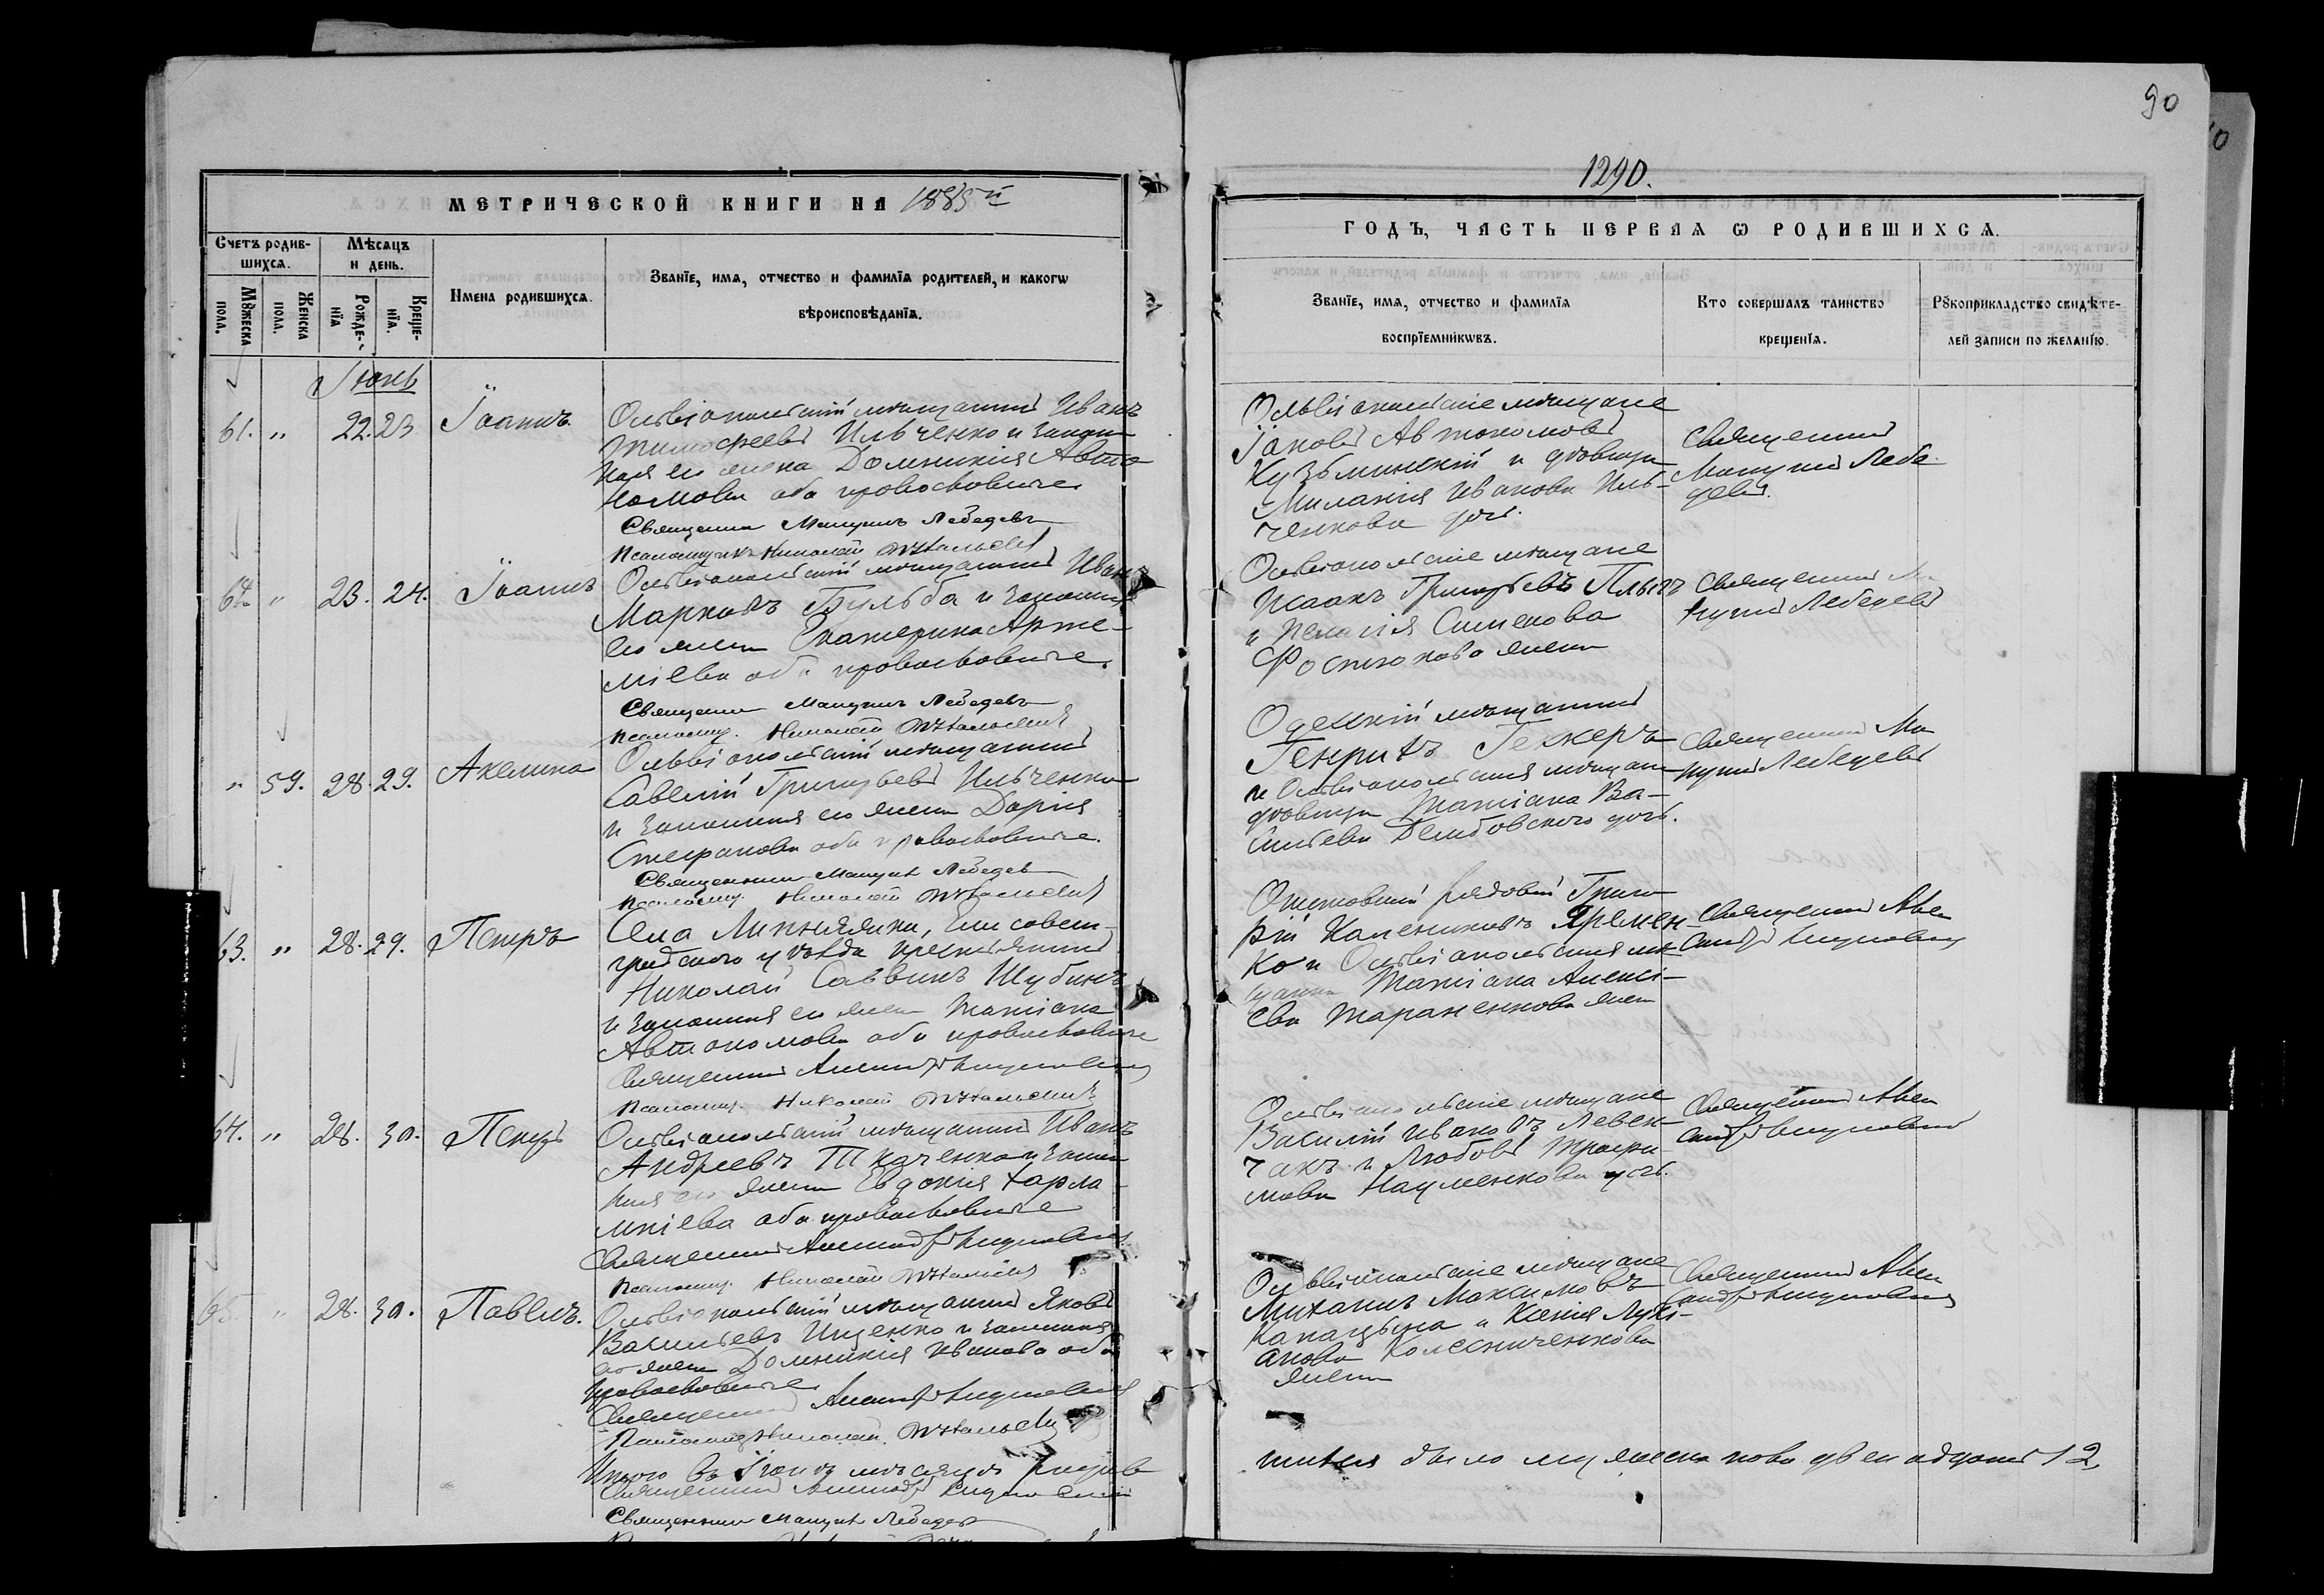 90
1290.
МЕТРИЧЕСКОЙ КНИГИ НА 1885й
ГОДЪ, ЧАСТЬ ПЕРВАЯ Ѡ РОДИВШИХСЯ.
Счетъ родив-
шихся.
Мѣсяцъ
и день.
Мꙋжеска
пола.
Женска
пола.
Рожде-
нїя
Креще-
нїя.
Имена родившихся.
Званїе, имя, отчество и фамилїя родителей, и какогѡ
вѣроисповѣданїя.
Званїе, имя, отчество и фамилїя
воспрїемникѡвъ.
Кто совершалъ таинство
крещенїя.
Рꙋкоприкладство свидѣте-
лей записи по желанїю.
Іюнь
61. " 22. 23 Іоаннъ.
Ольвіопольскій мѣщанинъ Иванъ
Тимофеевъ Ильченко и закон
ная его жена Домникія Авто
номова оба православные
Священникъ Мануилъ Лебедевъ
Псаломщикъ Николай
Ольвіопольскіе мѣщане
Іаковъ Автономовъ
Кузьминскій и вдовица
Миланія Иванова Иль-
ченкова дочь.
Священникъ
Мануилъ Лебе
девъ.
62. " 23. 24. Іоаннъ
Ольвіопольскій мѣщанинъ Иванъ
Марковъ Бульба и законная
его жена Екатерина Арте-
міева оба православные.
Священникъ Мануилъ Лебедевъ
Псаломщ. Николай
Ольвіопольскіе мѣщане
Исаакъ Григорьевъ
и Пелагія Сименова
жена
Священникъ Ма
нуилъ Лебедевъ
" 59. 28. 29. Акелина
Ольвіопольскій мѣщанинъ
Савелій Григорьевъ Ильченко
и законная его жена Дарія
Стефанова оба православные.
Священникъ Мануилъ Лебедевъ
Псаломщ. Николай
Одесскій мѣщанинъ
Генрихъ Геккеръ
и Ольвіопольская мѣщанка
вдовица Татіана Ва-
сильева дочь.
Священникъ Ма
нуилъ Лебедевъ
63. " 28. 29. Петръ
Села Елисавет-
градскаго уѣзда крестьянинъ
Николай Саввинъ Шубинъ
и законная его жена Татіана
Автономова оба православные
Священникъ Александръ
Псаломщ. Николай
Отставной рядовой Григо
рій Калениковъ Яремен-
ко и Ольвіопольская мѣ-
щанка Татіана Алексі-
ева Тараненкова жена
Священникъ Алек
сандръ
64. " 28. 30. Петръ
Ольвіопольскій мѣщанинъ Иванъ
Андреевъ Ткаченко и закон
ная его жена Евдокія Харла-
мпіева оба православные
Священникъ Александръ
Псаломщ. Николай
Ольвіопольскіе мѣщане
Василій Ивановъ Левен-
чакъ и Любовь Трофи-
мова Науменкова дочь.
Священникъ Алек
сандръ
65. " 28. 30. Павелъ.
Ольвіопольскій мѣщанинъ Яковъ
Васильевъ Ищенко и законная
его жена Домникія Иванова оба
православные
Священникъ Александръ
Псаломщ. Николай
Ольвіопольскіе мѣщане
Михаилъ Максимовъ
и Ксенія Лукі-
анова Колесниченкова
жена
Священникъ Алек
сандръ
Итого въ Іюнѣ мѣсяцѣ родив
шихся было мужеска пола двенадцать 12,
Священникъ Александръ
Священникъ Мануилъ Лебедевъ